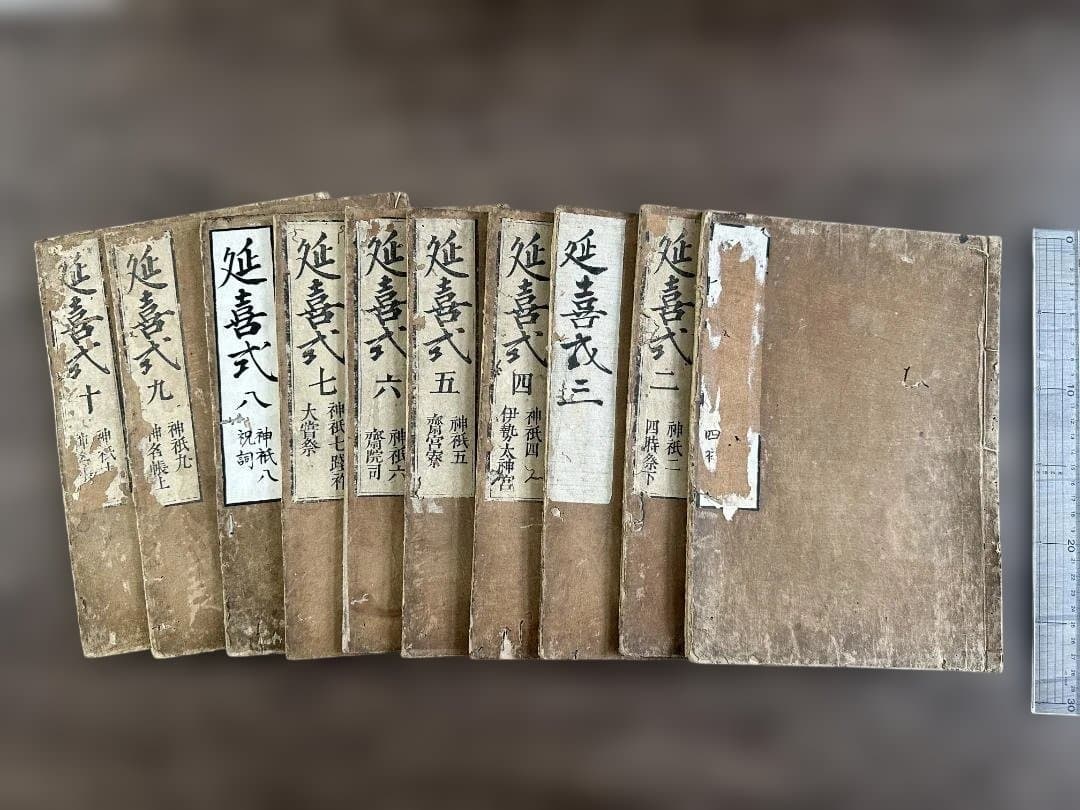 四
延喜式 二
神祇二
四時祭下
延喜式三
延喜式 四
神祇四
伊勢太神宮
延喜式 五
神祇五
齋宮寮
延喜式 六
神祇六
齋院司
延喜式 七
神祇七 踐祚
大嘗祭
延喜式 八
神祇八
祝詞
延喜式 九
神祇九
神名帳上
延喜式 十
神祇十
0
10
20
30